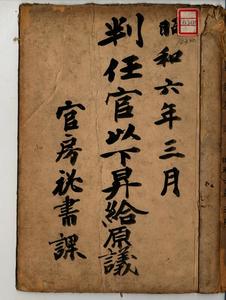 昭和六年三月
判任官以下昇給原議
官房秘書課